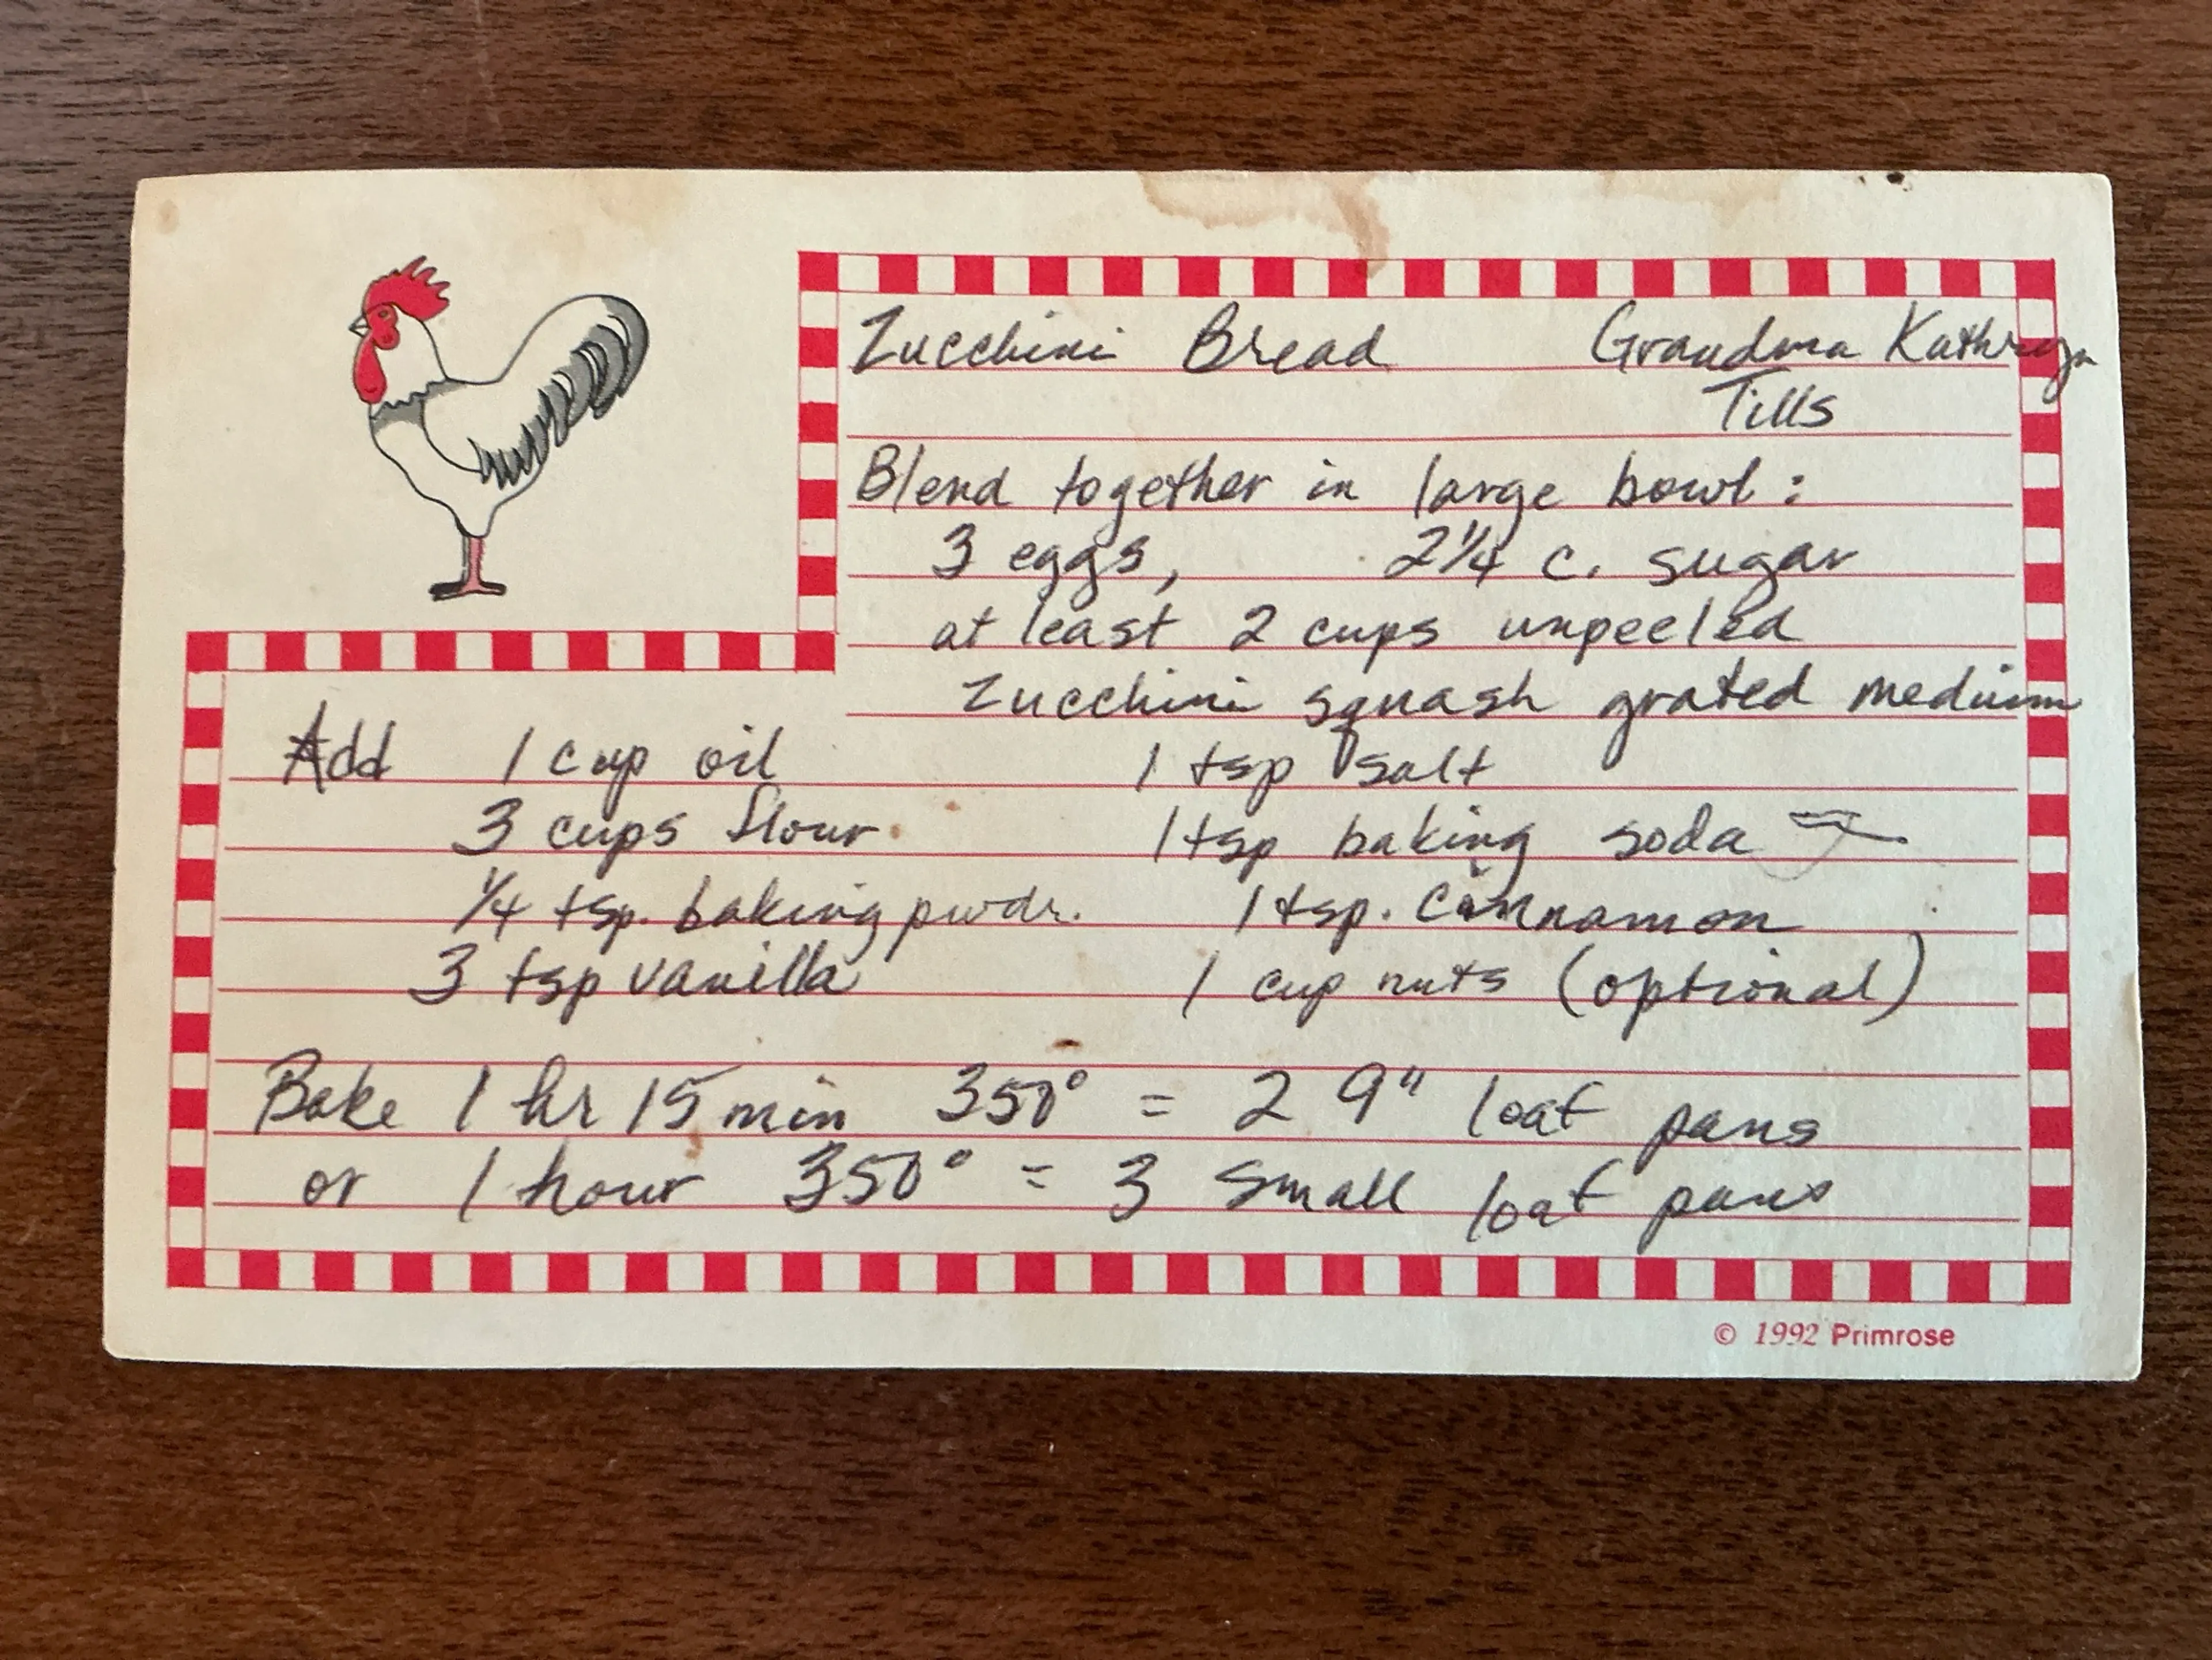 Zucchini Bread Grandma Kathryn
Tills
Blend together in large bowl:
3 eggs, 2¼ c. sugar
at least 2 cups unpeeled
zucchini squash grated medium
Add 1 cup oil 1 tsp salt
3 cups flour 1 tsp baking soda
¼ tsp. baking pwdr. 1 tsp. cinnamon
3 tsp vanilla 1 cup nuts (optional)
Bake 1 hr 15 min 350° = 2 9" loaf pans
or 1 hour 350° = 3 small loaf pans
© 1992 Primrose